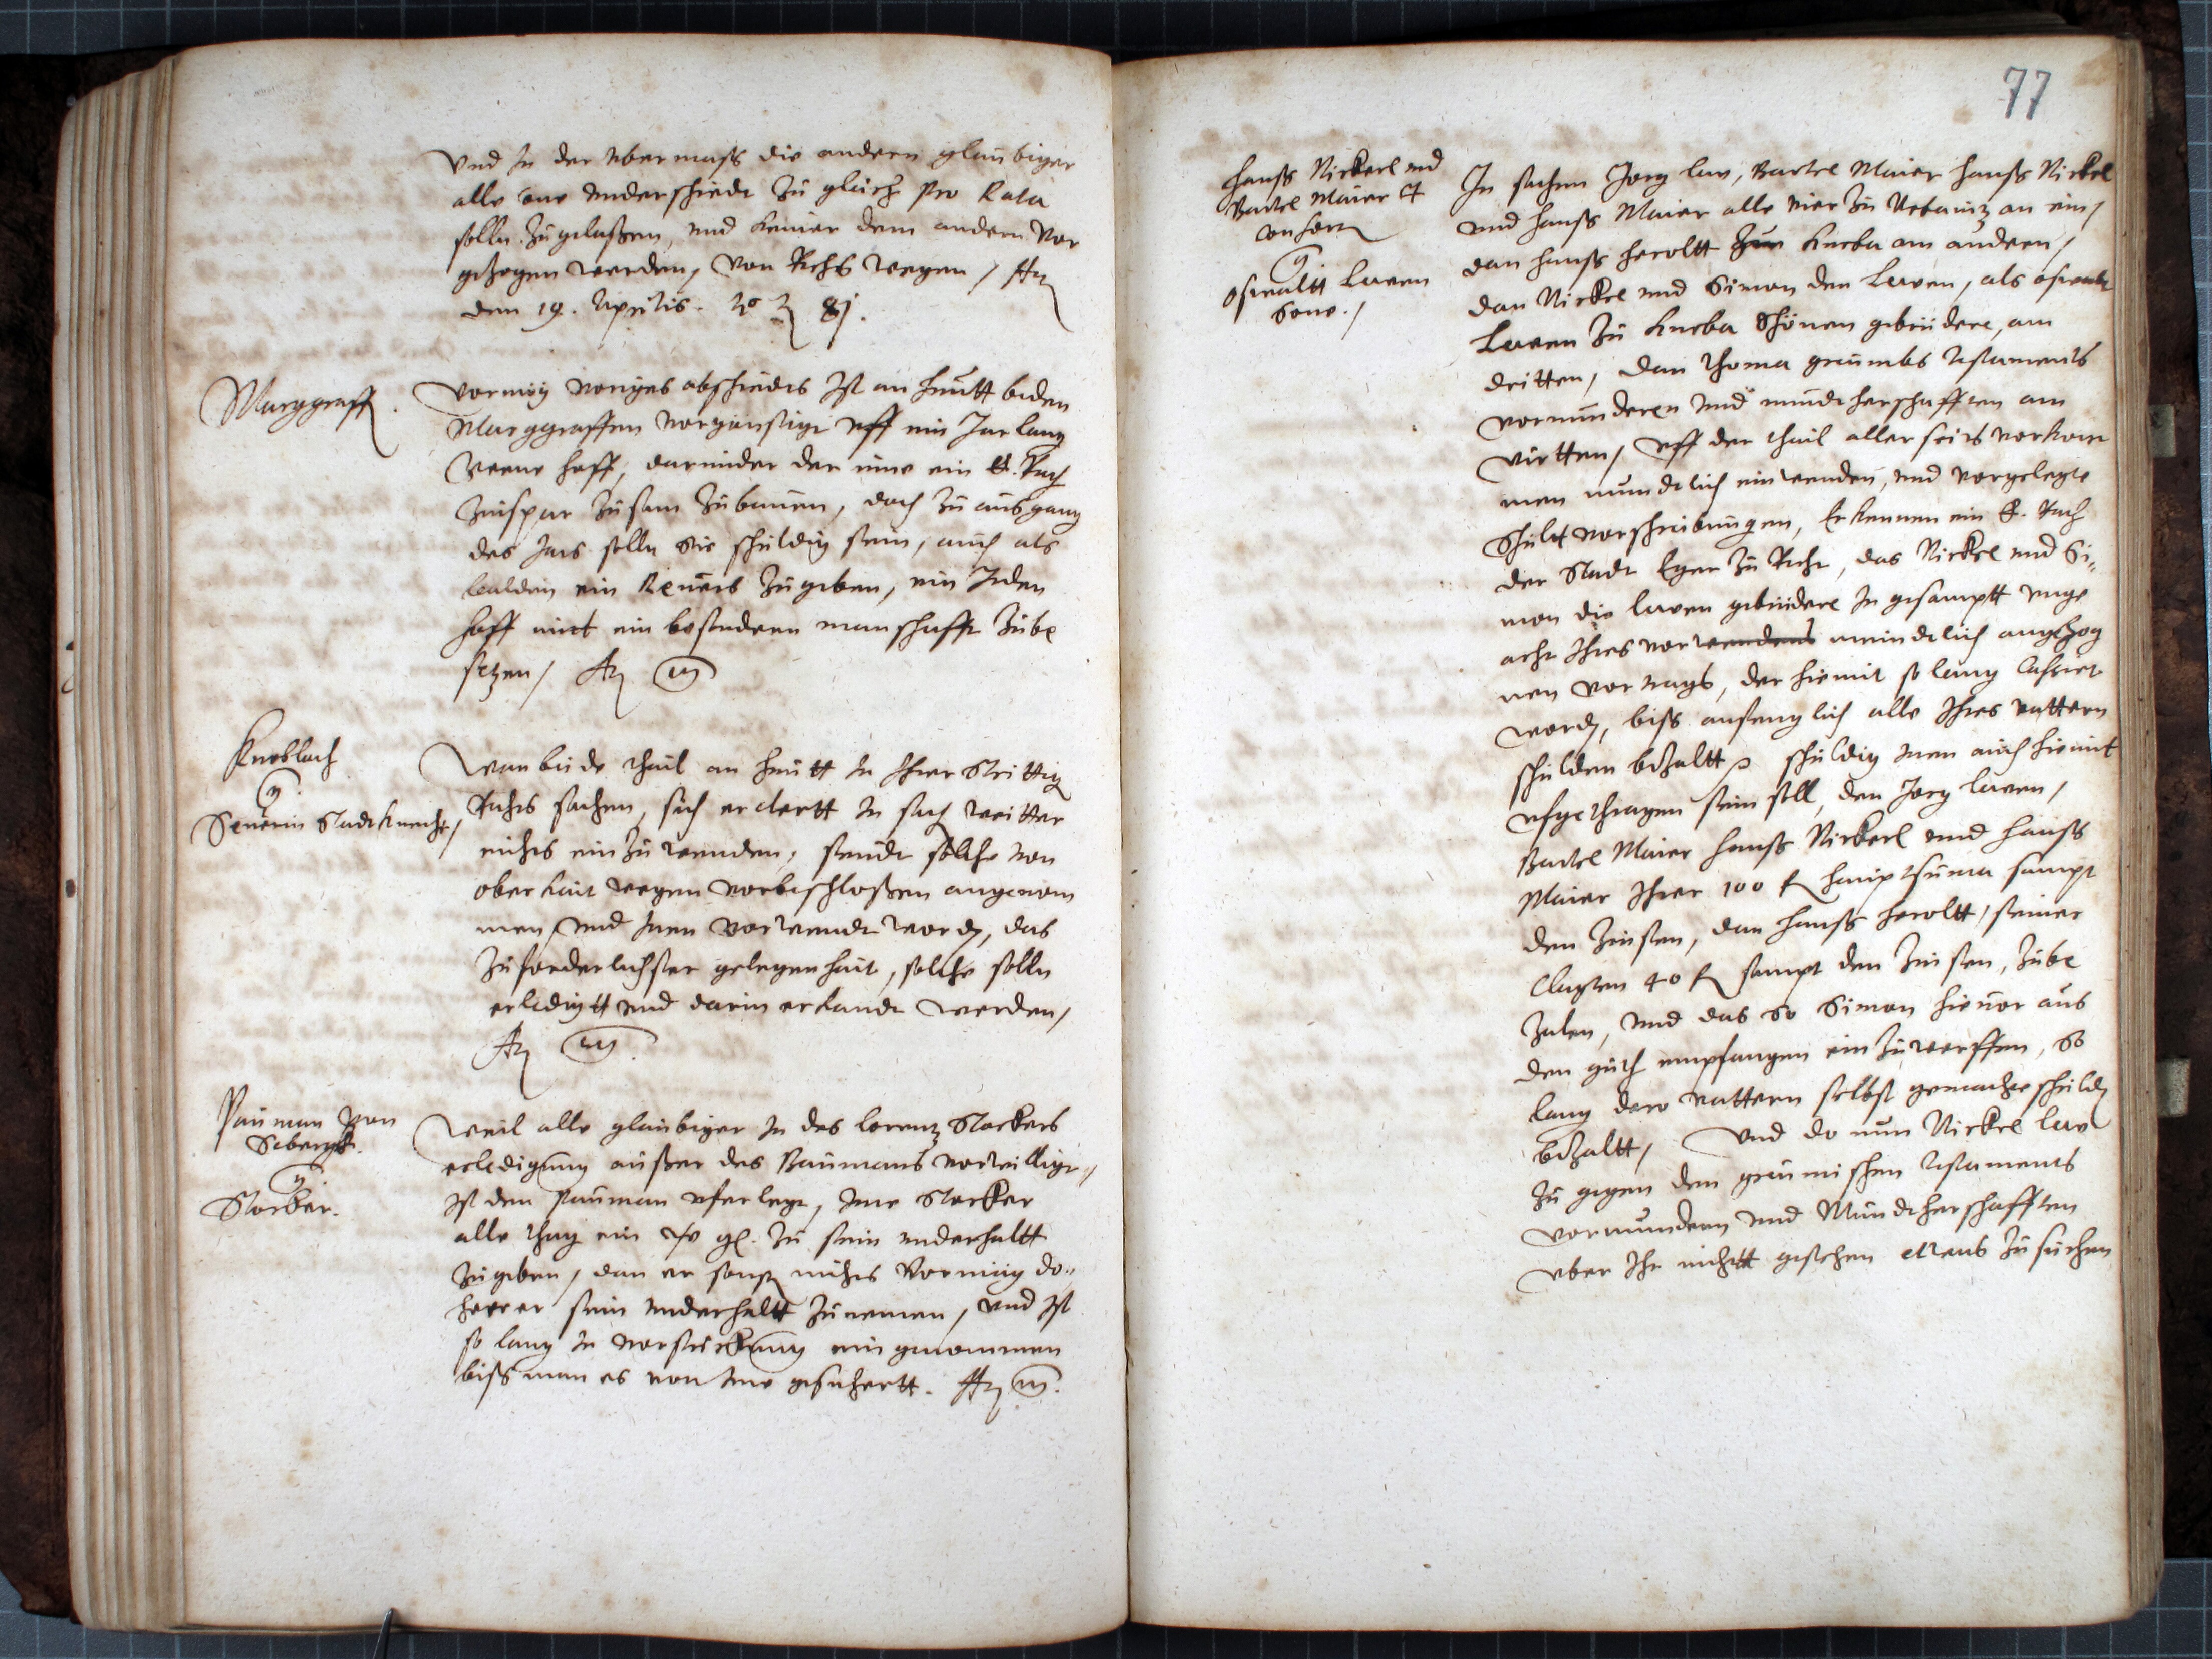 Vnd In der vbermass die andern glaubiger
alle one vnderschiedt zu gleich pro Rata
solln zugelassen, vnd keiner dem andern vor
gezogen werden, von Rechts wegen /
den 19. Aprilis. 81.
Marggraff.
Vermög voriges abschiedts Ist an heutt beden
Marggraffen vorgünstigt vff ein Jar lang
hoff, darunder der eine ein E. Rath
Zinspar zusam zubauen, doch zu ausgang
des Jars solln sie schuldig sein, auch als
balden ein Reuers zugeben, ein Jden
hoff mit ein besondern manschafft zube
setzen /
Knoblach
Seuerin Stadtknecht /
Wan beide thail an heutt In Ihrer Strittig
Rechts sachen, sich erclertt In sach weitter
nichts einzuwenden, seindt solche von
oberkait wegen vorbeschlossen angenom
men, vnd Inen vorwendt word, das
zu forderlichster gelegenhait, solche solln
erledigtt vnd darin erkandt werden /
Pauman von
Seberg.
Stocker.
Weil alle glaubiger In des Lorentz Stockers
erledigung ausser des Baumans vorwilligt,
Ist den pauman vferlegt, Ime Stocker
alle thag ein gl. zu sein vnderhaltt
zugeben, dan er sonst nichts vormag do,,
herr er sein vnderhaltt zunemen, vnd Ist
so lang In vorstrickung eingenommen
biss man es von Ime gesichertt.
77
Hanss Nickerl vnd
Bartel Maier
Consort
Osswaltt Lawen
Sone. /
In sachen Jorg Law, Bartel Maier Hanss Nickel
vnd Hanss Maier alle vier zu Nebanitz an ein /
dan Hanss Heroltt Kneba am andern /
dan Nickel vnd Simon den Lawen, als Osswaltt
Lawen zu Kneba Söhnen gebrüdere, am
dritten, dan Thoma graumbs testaments
vormündern vnd mündtherschafften am
virtten, vff der thail allerseits vorkom
men mundtlich einwenden, vnd vorgelegte
Schultvorschreibungen, Erkennen ein E. Rath
der Stadt Eger zu Recht, das Nickel vnd Si,,
mon die Lawen gebrüdere In gesamptt vnge
acht Ihres vorwendens mündtlich angezog
nen vortrags, der hiemit so lang Cassiert
word, biss anfenglich alle Ihres vattern
schulden bezaltt schuldig Inen auch hiemit
vfgethragen sein soll, den Jorg Lawen /
Bartel Maier Hanss Nickerl vnd Hanss
Maier Ihrer 100 f hauptsuma sampt
den Zinsen, dan Hanss Heroltt, seiner
Clagten 40 f sampt den Zinsen, zube
zalen, vnd das so Simon hieuor aus
den guth empfangen einzuwerffen, so
lang dero vattern selbst gemachte schuld
bezaltt / Vnd do nun Nickel Law
zu gegen den graumischen testaments
vormundern vnd Mündtherschafften
vber Ihr nichtt gestehen etwas zusuchen